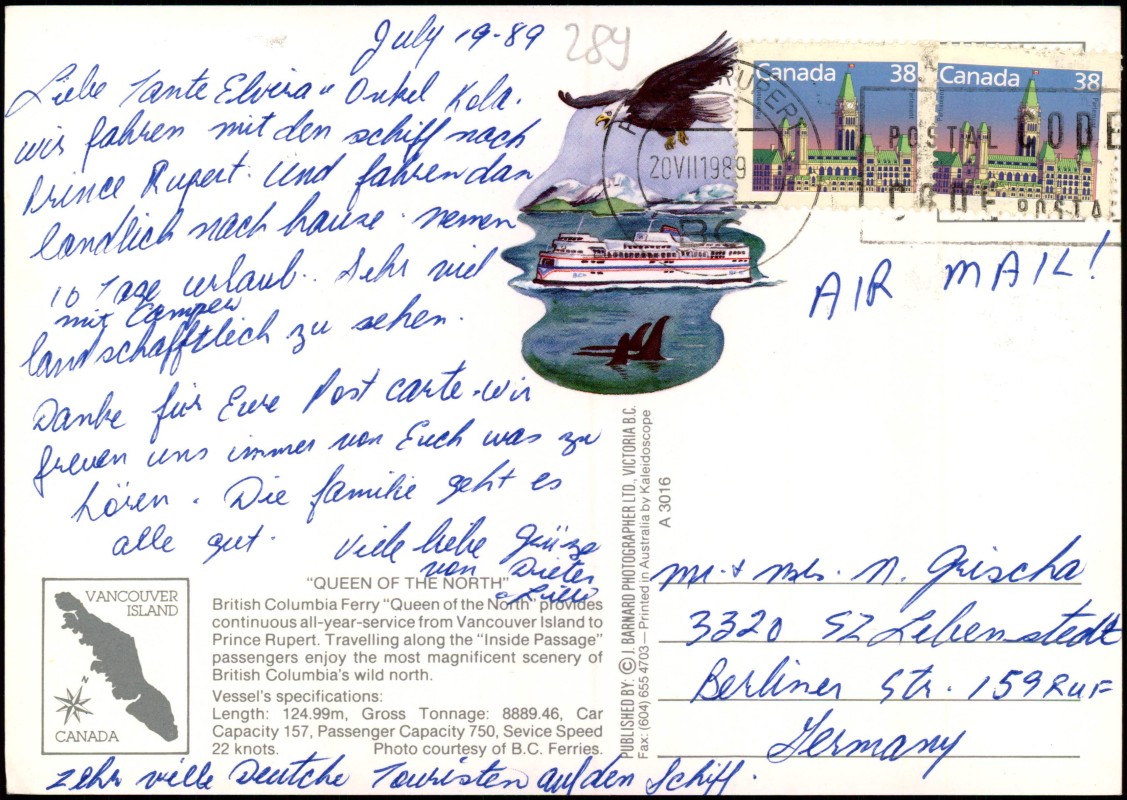 July 19-89
289
Liebe Tante Elvira u Onkel Kola.
wir fahren mit den schiff nach
Prince Rupert. Und fahren dan
landlich nach hause. nemen
10 Tage urlaub. Sehr viel
mit Camper
landschafftlich zu sehen.
Danke für Eure Post carte. wir
freuen uns immer von Euch was zu
hören. Die familie geht es
alle gut. Viele liebe Grüze
von Dieter
Canada 38
Canada 38
RUPERT
20 VII 1989
BC
POSTAL CODE
CODE POSTA
AIR MAIL!
Mr. + Mrs. N. Grischa
3320 SZ Lebenstedt
Berliner Str. 159
Germany
PUBLISHED BY: © J. BARNARD PHOTOGRAPHER LTD., VICTORIA B.C.
Fax: (604) 655 4703 — Printed in Australia by Kaleidoscope
A 3016
VANCOUVER
ISLAND
N
CANADA
"QUEEN OF THE NORTH"
British Columbia Ferry "Queen of the North" provides
continuous all-year-service from Vancouver Island to
Prince Rupert. Travelling along the "Inside Passage"
passengers enjoy the most magnificent scenery of
British Columbia's wild north.
Vessel's specifications:
Length: 124.99m, Gross Tonnage: 8889.46, Car
Capacity 157, Passenger Capacity 750, Sevice Speed
22 knots. Photo courtesy of B.C. Ferries.
Zehr ville Deutche Touristen auf den Schiff.